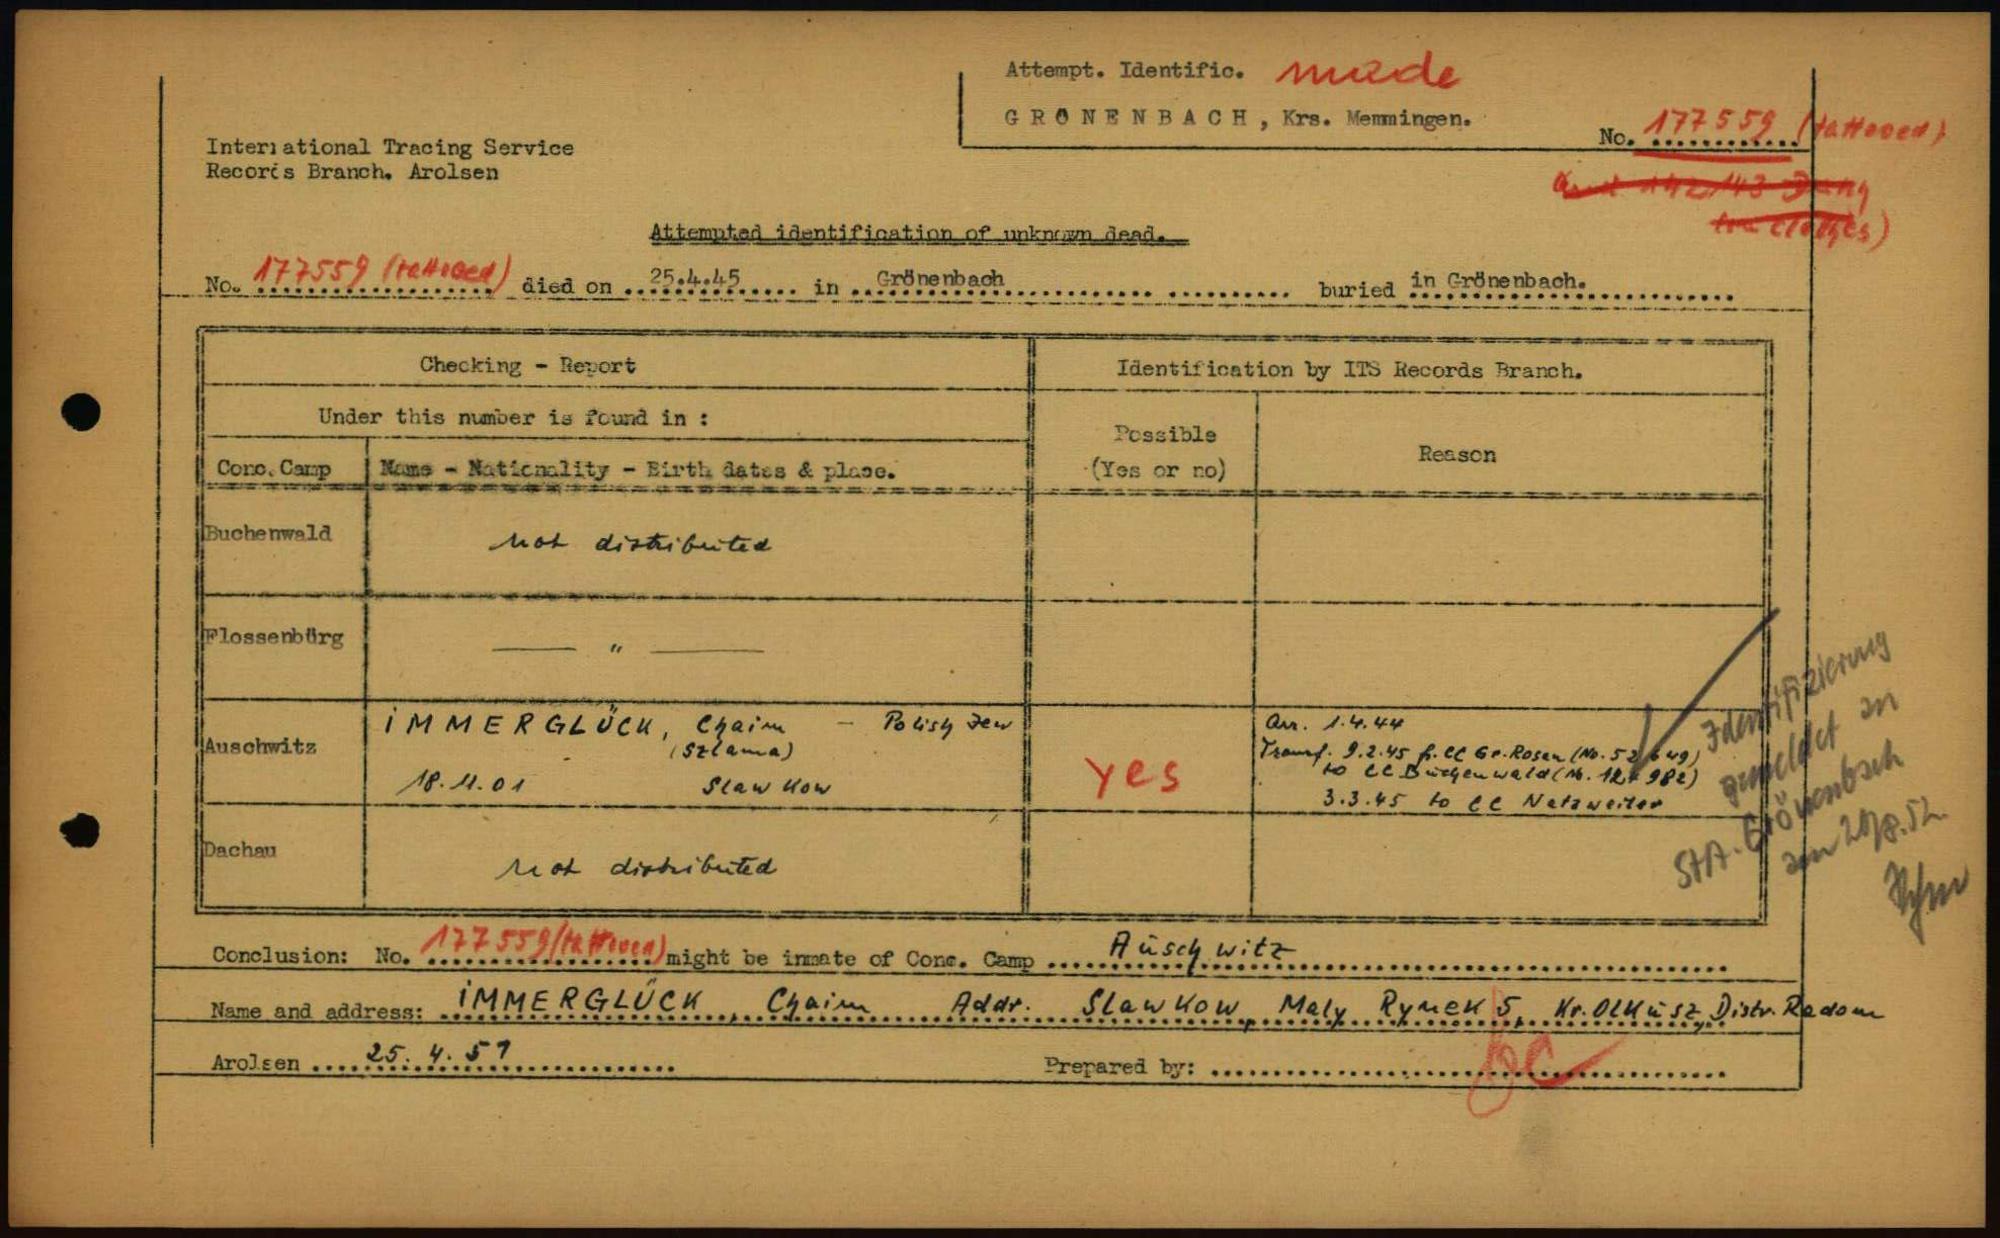 Attempt. Identific. made
GRÖNENBACH, Krs. Memmingen.
No. 177559 (tattooed)
International Tracing Service
Records Branch. Arolsen
clothes)
Attempted identification of unknown dead.
No. 177559 (tattooed) died on 25.4.45 in Grönenbach buried in Grönenbach.
Checking - Report
Identification by ITS Records Branch.
Under this number is found in :
Possible
(Yes or no)
Reason
Conc. Camp
Name - Nationality - Birth dates & place.
Buchenwald
not distributed
Flossenbürg
— " —
Auschwitz
IMMERGLÜCK, Chaim - Polish Jew
(Szlama)
18.11.01 Slawkow
yes
Arr. 1.4.44
Transf. 9.2.45 fr. CC Gr. Rosen (No. 52649)
to CC Buchenwald (No. 982)
3.3.45 to CC Natzweiler
Dachau
not distributed
Identifizierung
gemeldet an
StA. Grönenbach
am 20/8.52
Conclusion: No. 177559 (tattooed) might be inmate of Conc. Camp Auschwitz
Name and address: IMMERGLÜCK, Chaim Addr. Slawkow, Maly Rynek 5, Kr. Olkusz, Distr. Radom
Arolsen 25.4.51
Prepared by: